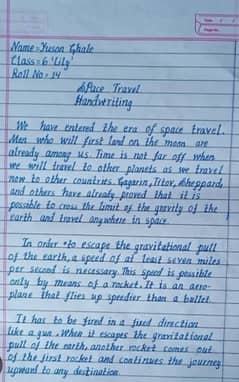 Name:- Yuson Ghale
Class:- 6 'Lily'
Roll No:- 14
Space Travel
Handwriting
We have entered the era of space travel.
Men who will first land on the moon are
already among us. Time is not far off when
we will travel to other planets as we travel
now to other countries. Gagarin, Titov, Sheppard,
and others have already proved that it is
possible to cross the limit of the gravity of the
earth and travel anywhere in space.
In order to escape the gravitational pull
of the earth, a speed of at least seven miles
per second is necessary. This speed is possible
only by means of a rocket. It is an aero-
plane that flies up speedier than a bullet.
It has to be fired in a fixed direction
like a gun. When it escapes the gravitational
pull of the earth, another rocket comes out
of the first rocket and continues the journey
upward to any destination.